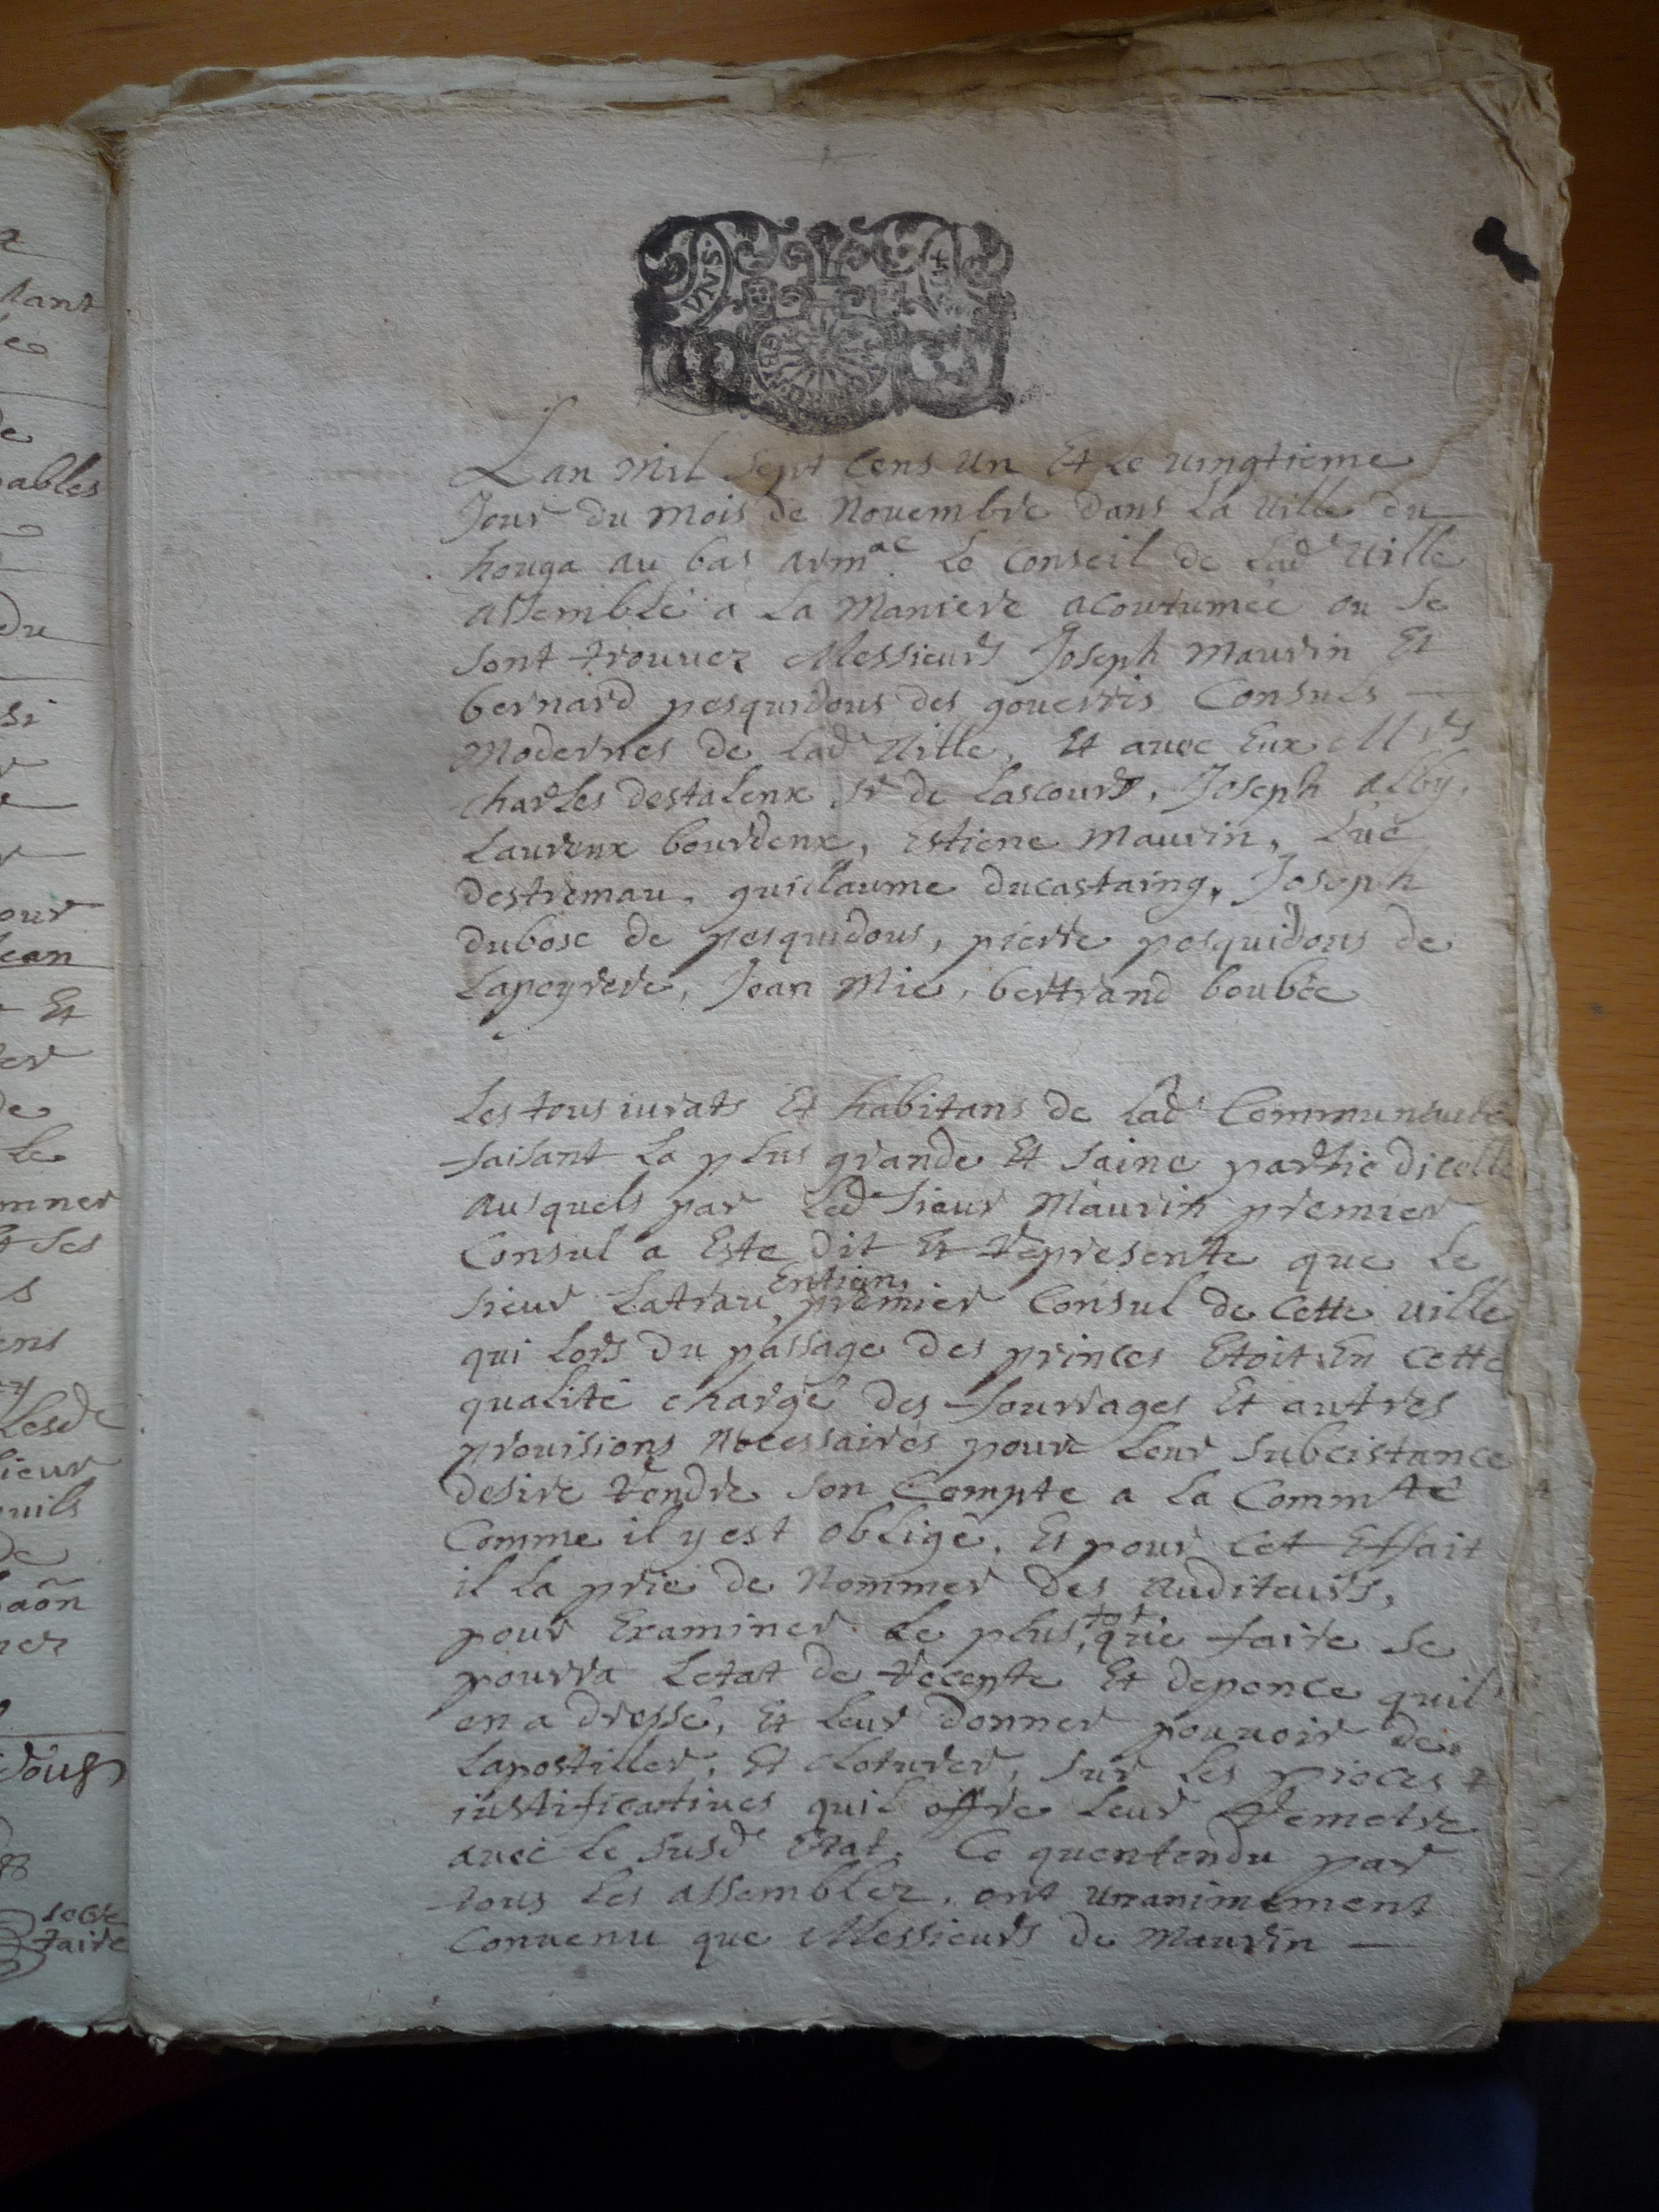 Lan mil sept cens un Et Le vingtieme
Jour du mois de Novembre dans La ville du
houga au bas arm.ac Le Conseil de Lad.e Ville
assemblé a La Maniere acoutumée ou se
sont trouvez Messieurs Joseph Maurin Et
bernard pesquidous des gouerris Consuls
Modernes de Lad.e Ville, Et avec Eux Mrs
charles destalenx Sr de Lascours, Joseph alby,
Laurenx bourdenx, Estiene Maurin, Luc
destremau, guilaume ducastaing, Joseph
dubosc de pesquidous, pierre pesquidous de
Lapeyrere, Jean Mie, bertrand boubée
Les tous iurats Et habitans de Lad.e Communauté
faisant La plus grande Et saine partie dicelle
ausquels par Led sieur Maurin premier
Consul a Este dit Et represente que Le
sieur Latrau Entien premier Consul de Cette ville
qui Lors du passage des princes Etoit En cette
qualité chargé des fourrages Et autres
provisions Necessaires pour Leur subcistance
desire rendre son Compte a La Commté
Comme il y est obligé, Et pour cet Effait
il La prie de Nommer des auditeurs,
pour Examiner Le plus tot que faire se
pourra Letat de recepte Et depence quil
en a dressé, Et Leur donner pouvoir de
Lapostiller, Et cloturer, sur Les pieces
iustificatives quil offre Leur Remetre
avec Le susd.e Etat. Ce quentendu par
tous Les assemblez, ont unanimement
Convenu que Messieurs de Maurin
tant
ables
du
si
our
Jean
Et
er
de
Le
mner
t ses
s
ens
Lesd.
sieur
quils
de